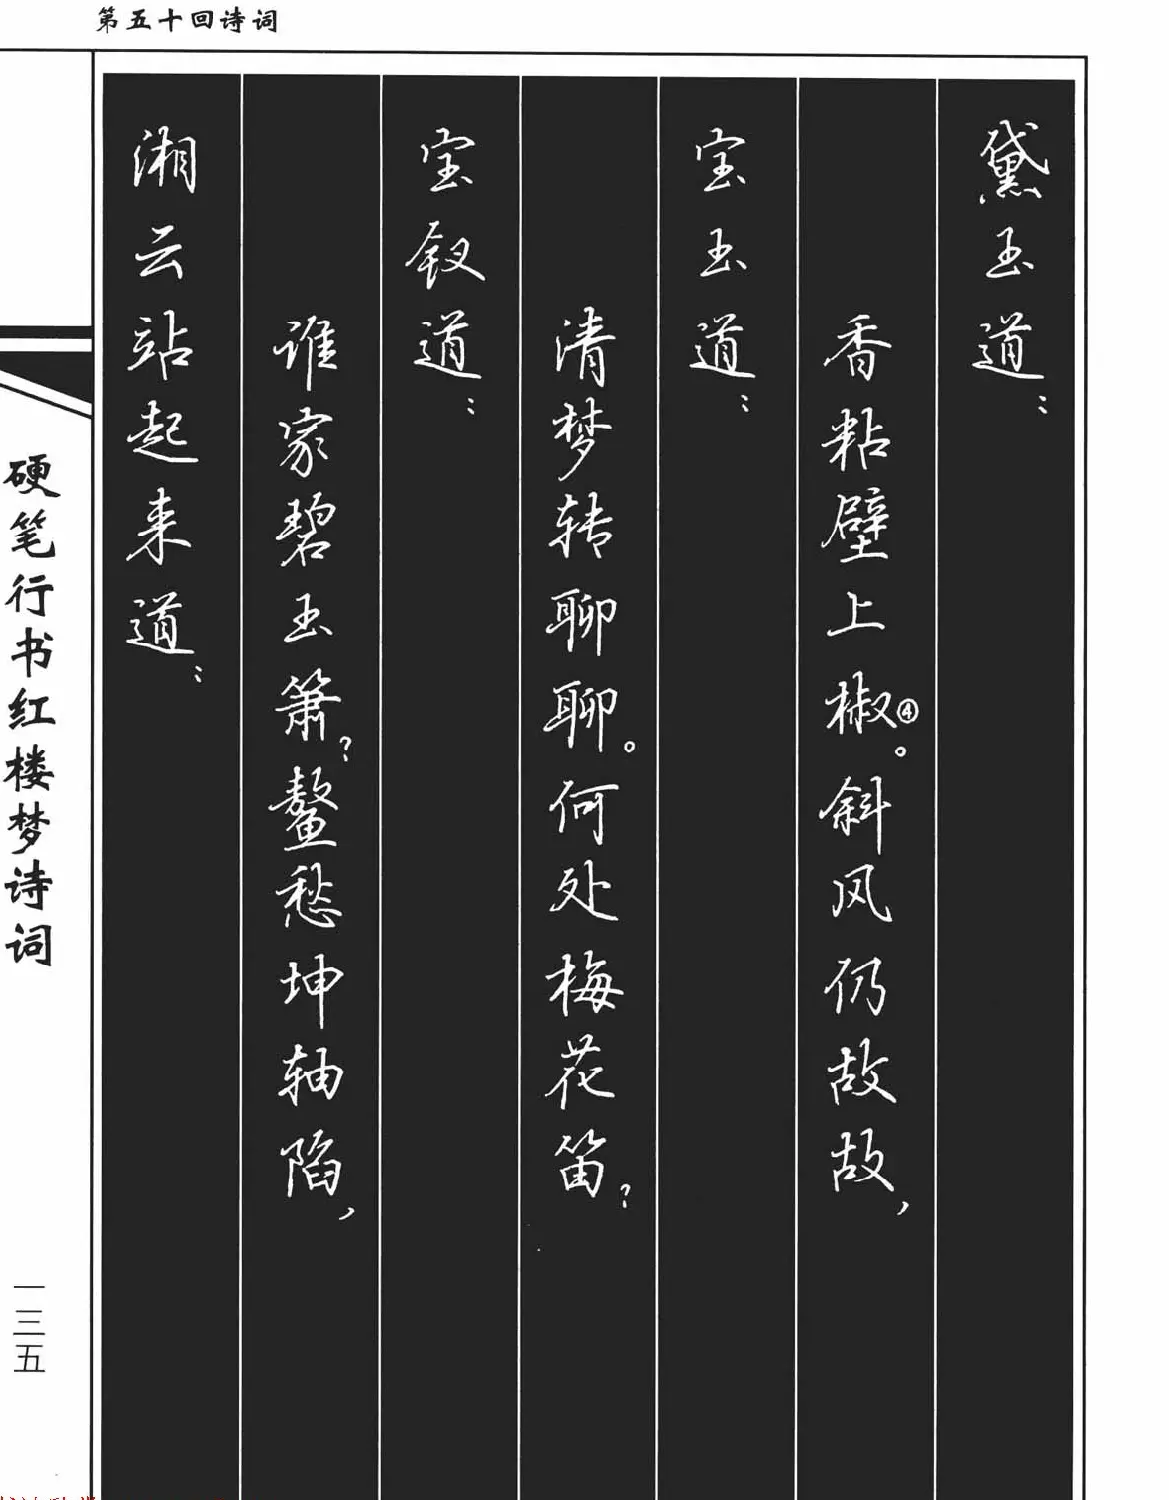 第五十回诗词
黛玉道：
香粘壁上椒④。斜风仍故故，
宝玉道：
清梦转聊聊。何处梅花笛？
宝钗道：
谁家碧玉箫？鳌愁坤轴陷，
湘云站起来道：
硬笔行书红楼梦诗词
一三五